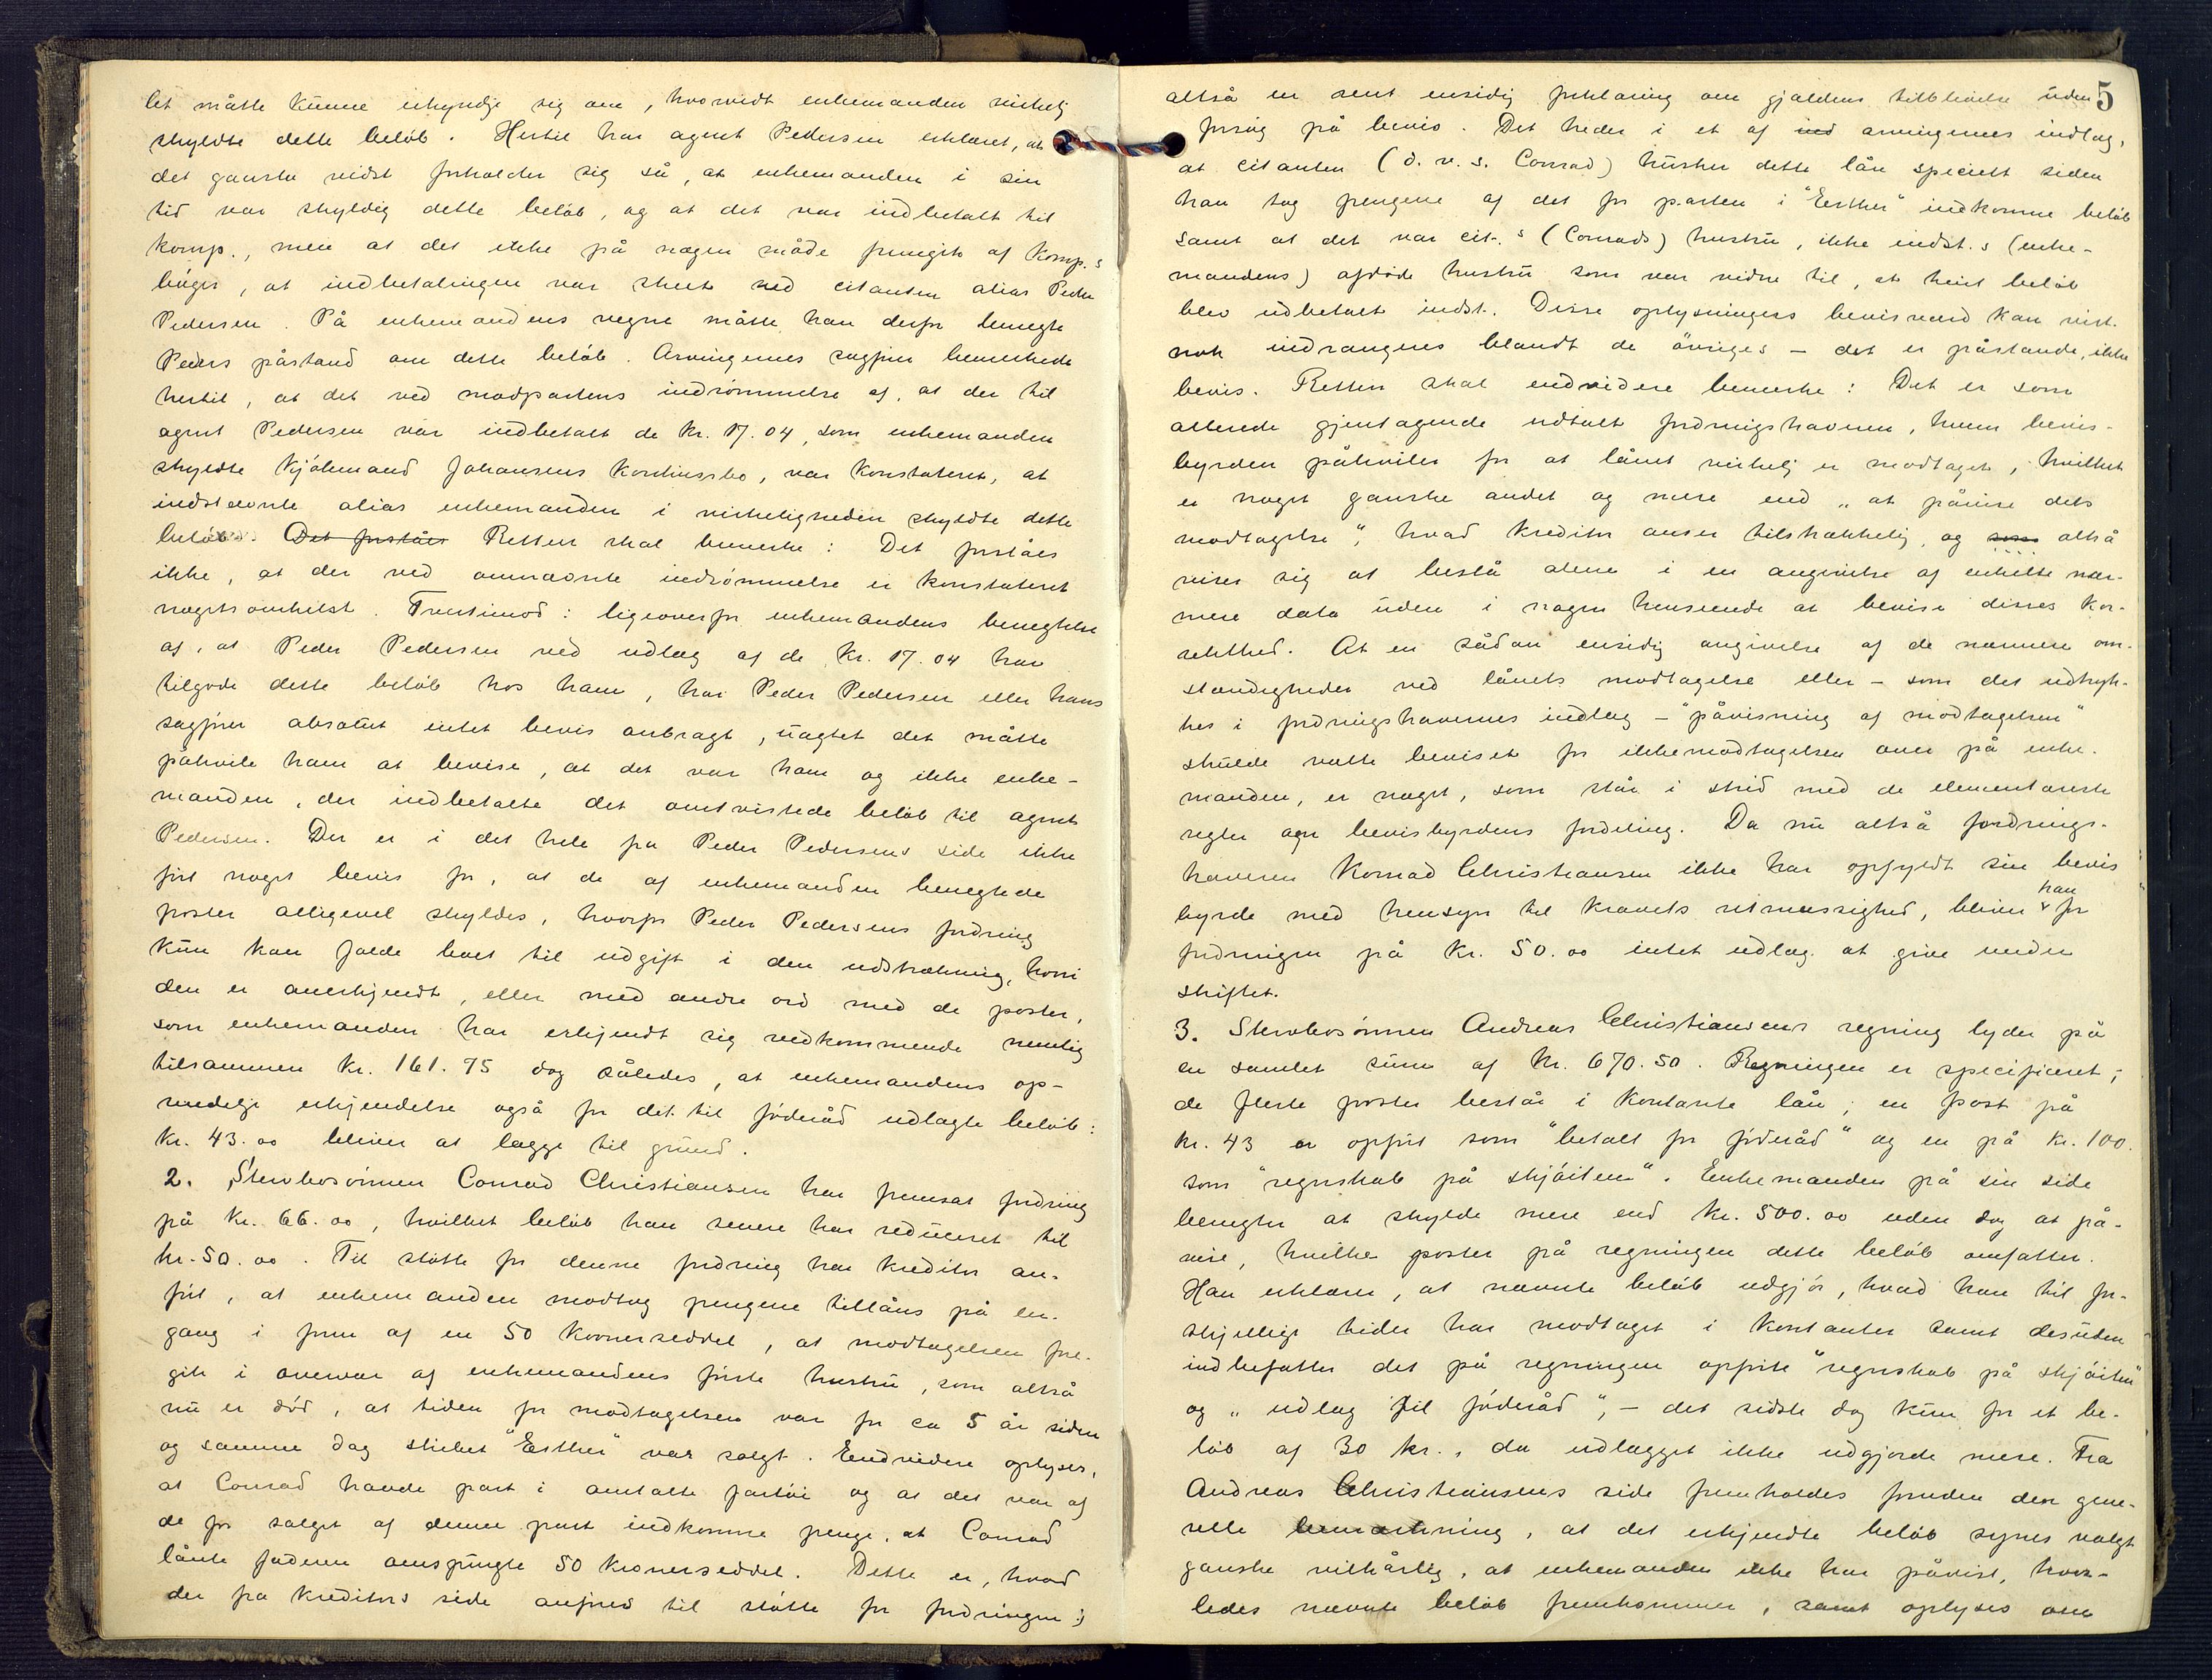 let måtte kunne erkyndje sig om, hvorvidt enkemanden virkelig
skyldte dette beløb. Hertil har agent Pedersen erklæret, at
det ganske vidst forholder sig så, at enkemanden i sin
tid var skyldig dette beløb, og at det var indbetalt til
komp., men at det ikke på nogen måde fremgik af komp.s
bøger, at indbetalingen var skeet ved citanten alias Peder
Pedersen. På enkemandens vegne måtte han derfor benegte
Peders påstand om dette beløb. Arvingernes sagfører bemerkede
hertil, at det ved modpartens indrømmelse af, at der til
agent Pedersen var indbetalt de kr. 17.04, som enkemanden
skyldte kjøbmand Johansens konkursbo, var konstateret, at
indstevnte alias enkemanden i virkeligheden skyldte dette
beløb. Det forståes Retten skal bemerke: Det forståes
ikke, at der ved omnævnte indrømmelse er konstateret
nogetsomhelst. Tvertimod: ligeoverfor enkemandens benegtelse
af, at Peder Pedersen ved udlæg af de kr. 17.04 har
tilgode dette beløb hos ham, har Peder Pedersen eller hans
sagfører absolut intet bevis anbragt, uagtet det måtte
påhvile ham at bevise, at det var ham og ikke enke-
manden, der indbetalte det omtvistede beløb til agent
Pedersen. Der er i det hele fra Peder Pedersens side ikke
ført noget bevis for, at de af enkemanden benegtede
poster alligevel skyldes, hvorfor Peder Pedersens fordring
kun kan falde boet til udgift i den udstrækning, hvori
den er anerkjendt, eller med andre ord med de poster,
som enkemanden har erkjendt sig vedkommende nemlig
tilsammen kr. 161.75 dog således, at enkemandens op-
rindelige erkjendelse også for det til føderåd udlagte beløb:
kr. 43.00 bliver at lægge til grund.
2. Stervbosønnen Conrad Christiansen har fremsat fordring
på kr. 66.00, hvilket beløb han senere har reduceret til
kr. 50.00. Til støtte for denne fordring har kreditor an-
ført, at enkemanden modtog pengene tillåns på en-
gang i form af en 50 kroneseddel, at modtagelsen fore-
gik i overvær af enkemandens første hustru, som altså
nu er død, at tiden for modtagelsen var for ca 5 år siden
og samme dag skibet "Esther" var solgt. Endvidere oplyses,
at Conrad havde part i omtalte fartøi og at det var af
de for salget af denne part indkomne penge, at Conrad
lånte faderen omspurgte 50 kroneseddel. Dette er, hvad
der fra kreditors side anføres til støtte for fordringen;
5
altså en rent ensidig forklaring om gjældens tilblivelse uden
forsøg på bevis. Det heder i et af ind arvingernes indlæg,
at citanten (d. v. s. Conrad) husker dette lån specielt siden
han tog pengene af det for parten i "Esther" indkomne beløb
samt at det var cit.s (Conrads) hustru, ikke indst.s (enke-
mandens) afdøde hustru som var vidne til, at hint beløb
blev udbetalt indst. Disse oplysningers bevisværd kan vist-
nok indrangeres blandt de øvriges – det er påstande, ikke
bevis. Retten skal endvidere bemerke: Det er som
allerede gjentagende udtalt fordringshaveren, hvem bevis-
byrden påhviler for at lånet virkelig er modtaget, hvilket
er noget ganske andet og mere end „at påvise dets
modtagelse", hvad kreditor anser tilstrækkelig, og som altså
viser sig at bestå alene i en angivelse af enkelte nær-
mere data uden i nogen henseende at bevise disses kor-
rekthed. At en sådan ensidig angivelse af de nærmere om-
stændigheder ved lånets modtagelse eller – som det udtryk-
kes i fordringshavernes indlæg – "påvisning af modtagelsen"
skulde vælte beviset for ikkemodtagelsen over på enke-
manden, er noget, som står i strid med de elementæreste
regler om bevisbyrdens fordeling. Da nu altså fordrings-
haveren Konrad Christiansen ikke har opfyldt sin bevis
byrde med hensyn til kravets retmæssighed, bliver han for
fordringen på kr. 50.00 intet udlæg at give under
skiftet.
3. Stervbosønnen Andreas Christiansens regning lyder på
en samlet sum af kr. 670.50. Regningen er specificeret;
de fleste poster består i kontante lån; en post på
kr. 43 er opført som "betalt for føderåd" og en på kr. 100.
som "regnskab på skjøiten". Enkemanden på sin side
benegter at skylde mere end kr. 500.00 uden dog at på-
vise, hvilke poster på regningen dette beløb omfatter.
Han erklærer, at nævnte beløb udgjør, hvad han til for-
skjellige tider har modtaget i kontanter samt desuden
indbefatter det på regningen opførte "regnskab på skjøiten"
og „udlæg til føderåd", – det sidste dog kun for et be-
løb af 30 kr., da udlægget ikke udgjorde mere. Fra
Andreas Christiansens side fremholdes foruden den gene-
relle bemærkning, at det erkjendte beløb synes valgt
ganske vilkårlig, at enkemanden ikke har påvist, hvor-
ledes nævnte beløb fremkommer, samt oplyses om